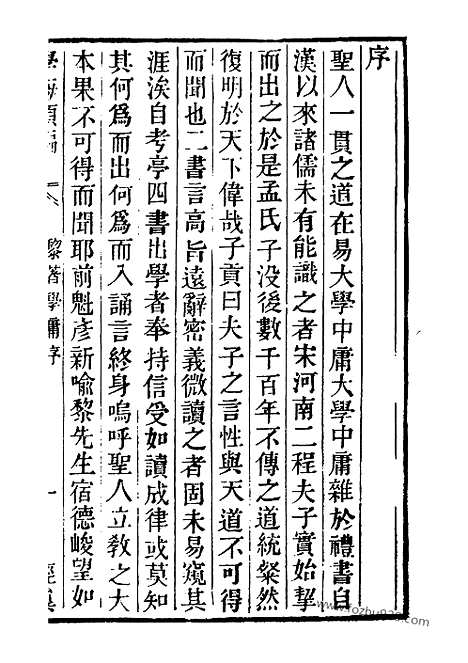 序
聖人一貫之道在易大學中庸大學中庸雜於禮書自
漢以來諸儒未有能識之者宋河南二程夫子實始挈
而出之於是孟氏子没後數千百年不傳之道統粲然
復明於天下偉哉子貢曰夫子之言性與天道不可得
而聞也二書言高旨遠辭密義微讀之者固未易窺其
涯涘自考亭四書出學者奉持信受如讀成律或莫知
其何爲而出何爲而入誦言終身嗚呼聖人立教之大
本果不可得而聞耶前魁彥新喻黎先生宿德峻望如
學海類編
黎著學庸序
一
www.fozhu920.com